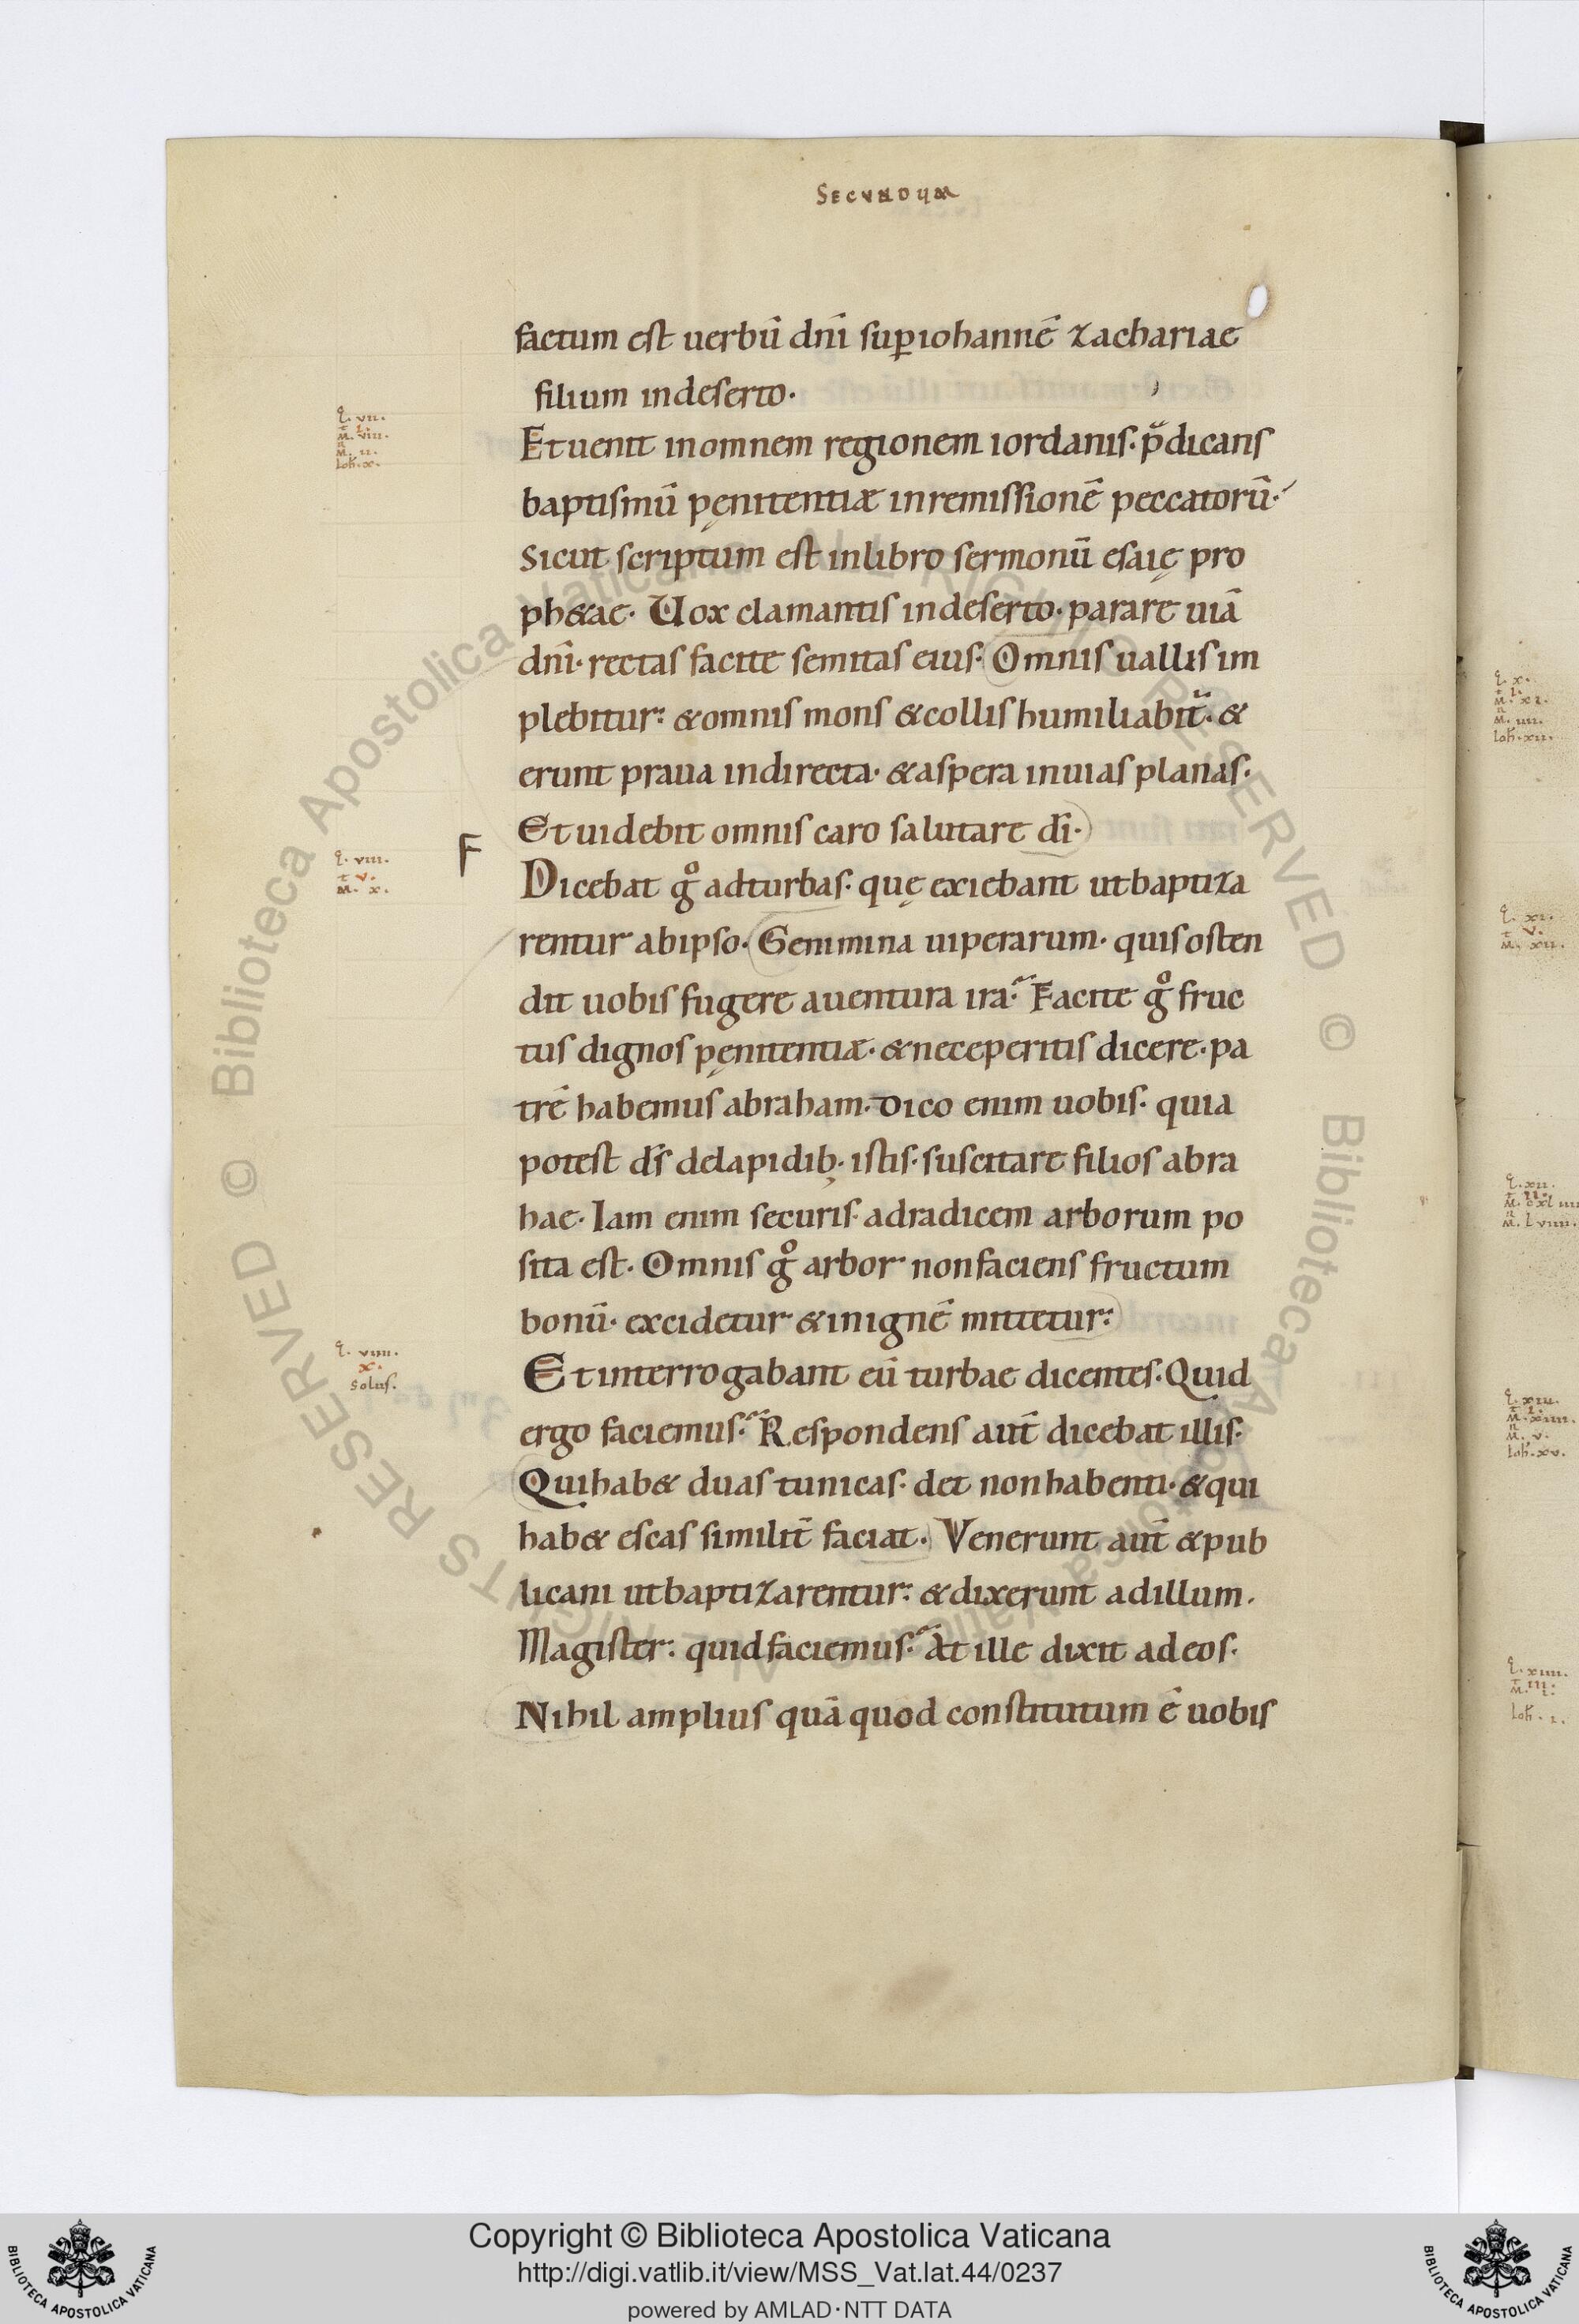 SECUNDUM
factum est uerbū dnī sup iohannē zachariae
filium indeserto·
Et uenit inomnem regionem iordanis· p̄dicans
baptismū pęnitentiæ inremissionē peccatorū·
Sicut scriptum est inlibro sermonū esaię pro
ph&ae· Uox clamantis indeserto· parate uiā
dnī· rectas facite semitas eius· Omnis uallis im
plebitur: &omnis mons &collis humiliabit᷑· &
erunt praua indirecta· &aspera inuias planas·
Et uidebit omnis caro salutare dī·
F
Dicebat gͦ adturbas· quę exiebant utbaptiza
rentur abipso· Genimina uiperarum· quis osten
dit uobis fugere auentura ira? Facite gͦ fruc
tus dignos pęnitentiæ· &neceperitis dicere· pa
trē habemus abraham· Dico enim uobis· quia
potest ds̄ delapidib; istis· suscitare filios abra
hae· Iam enim securis adradicem arborum po
sita est· Omnis gͦ arbor nonfaciens fructum
bonū· excidetur &inignē mittetur:
Et interrogabant eū turbae dicentes· Quid
ergo faciemus? Respondens aut̄ dicebat illis·
Qui hab& duas tunicas· det nonhabenti· &qui
hab& escas similit̄ faciat· Venerunt aut̄ &pub
licani utbaptizarentur: &dixerunt adillum·
Magister: quid faciemus? At ille dixit adeos·
Nihil amplius quā quod constitutum ē uobis
L. vii.
t i.
M. viii.
n
M. ii.
Ioh. x.
L. viii.
t v.
M. x.
L. viiii.
x.
solus.
L. x.
t i.
M. xi.
n
M. iiii.
Ioh. xii.
L. xi.
t v.
M. xii.
L. xii.
n
M. l viiii.
L. xiii.
t i.
M. xiiii.
n
M. v.
Ioh. xv.
L. xiiii.
t iii.
M. i.
Ioh. i.
© Biblioteca Apostolica Vaticana ALL RIGHTS RESERVED
© Biblioteca Apostolica Vaticana ALL RIGHTS RESERVED
Copyright © Biblioteca Apostolica Vaticana
http://digi.vatlib.it/view/MSS_Vat.lat.44/0237
powered by AMLAD·NTT DATA
BIBLIOTECA APOSTOLICA VATICANA
BIBLIOTECA APOSTOLICA VATICANA